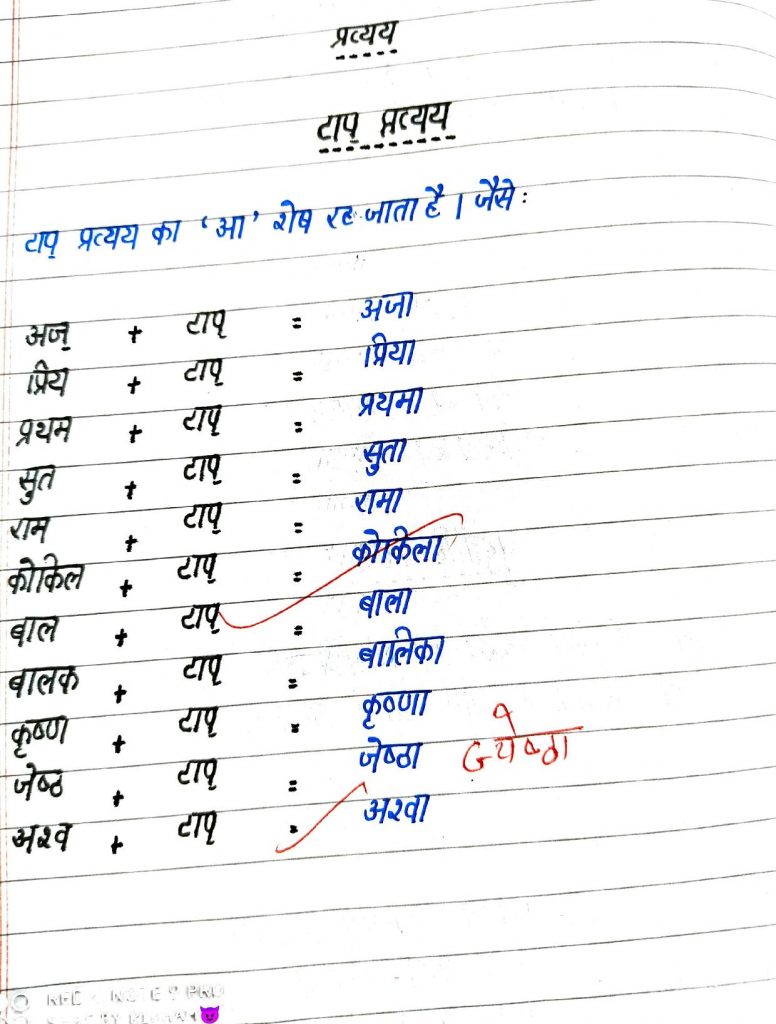 प्रत्यय
टाप् प्रत्यय
टाप् प्रत्यय का ‘आ’ शेष रह जाता है । जैसे :
अज् + टाप् = अजा
प्रिय + टाप् = प्रिया
प्रथम + टाप् = प्रथमा
सुत + टाप् = सुता
राम + टाप् = रामा
कोकिल + टाप् = कोकिला
बाल + टाप् = बाला
बालक + टाप् = बालिका
कृष्ण + टाप् = कृष्णा
जेष्ठ + टाप् = जेष्ठा ज्येष्ठा
अश्व + टाप् = अश्वा
NOTE 9 PRO